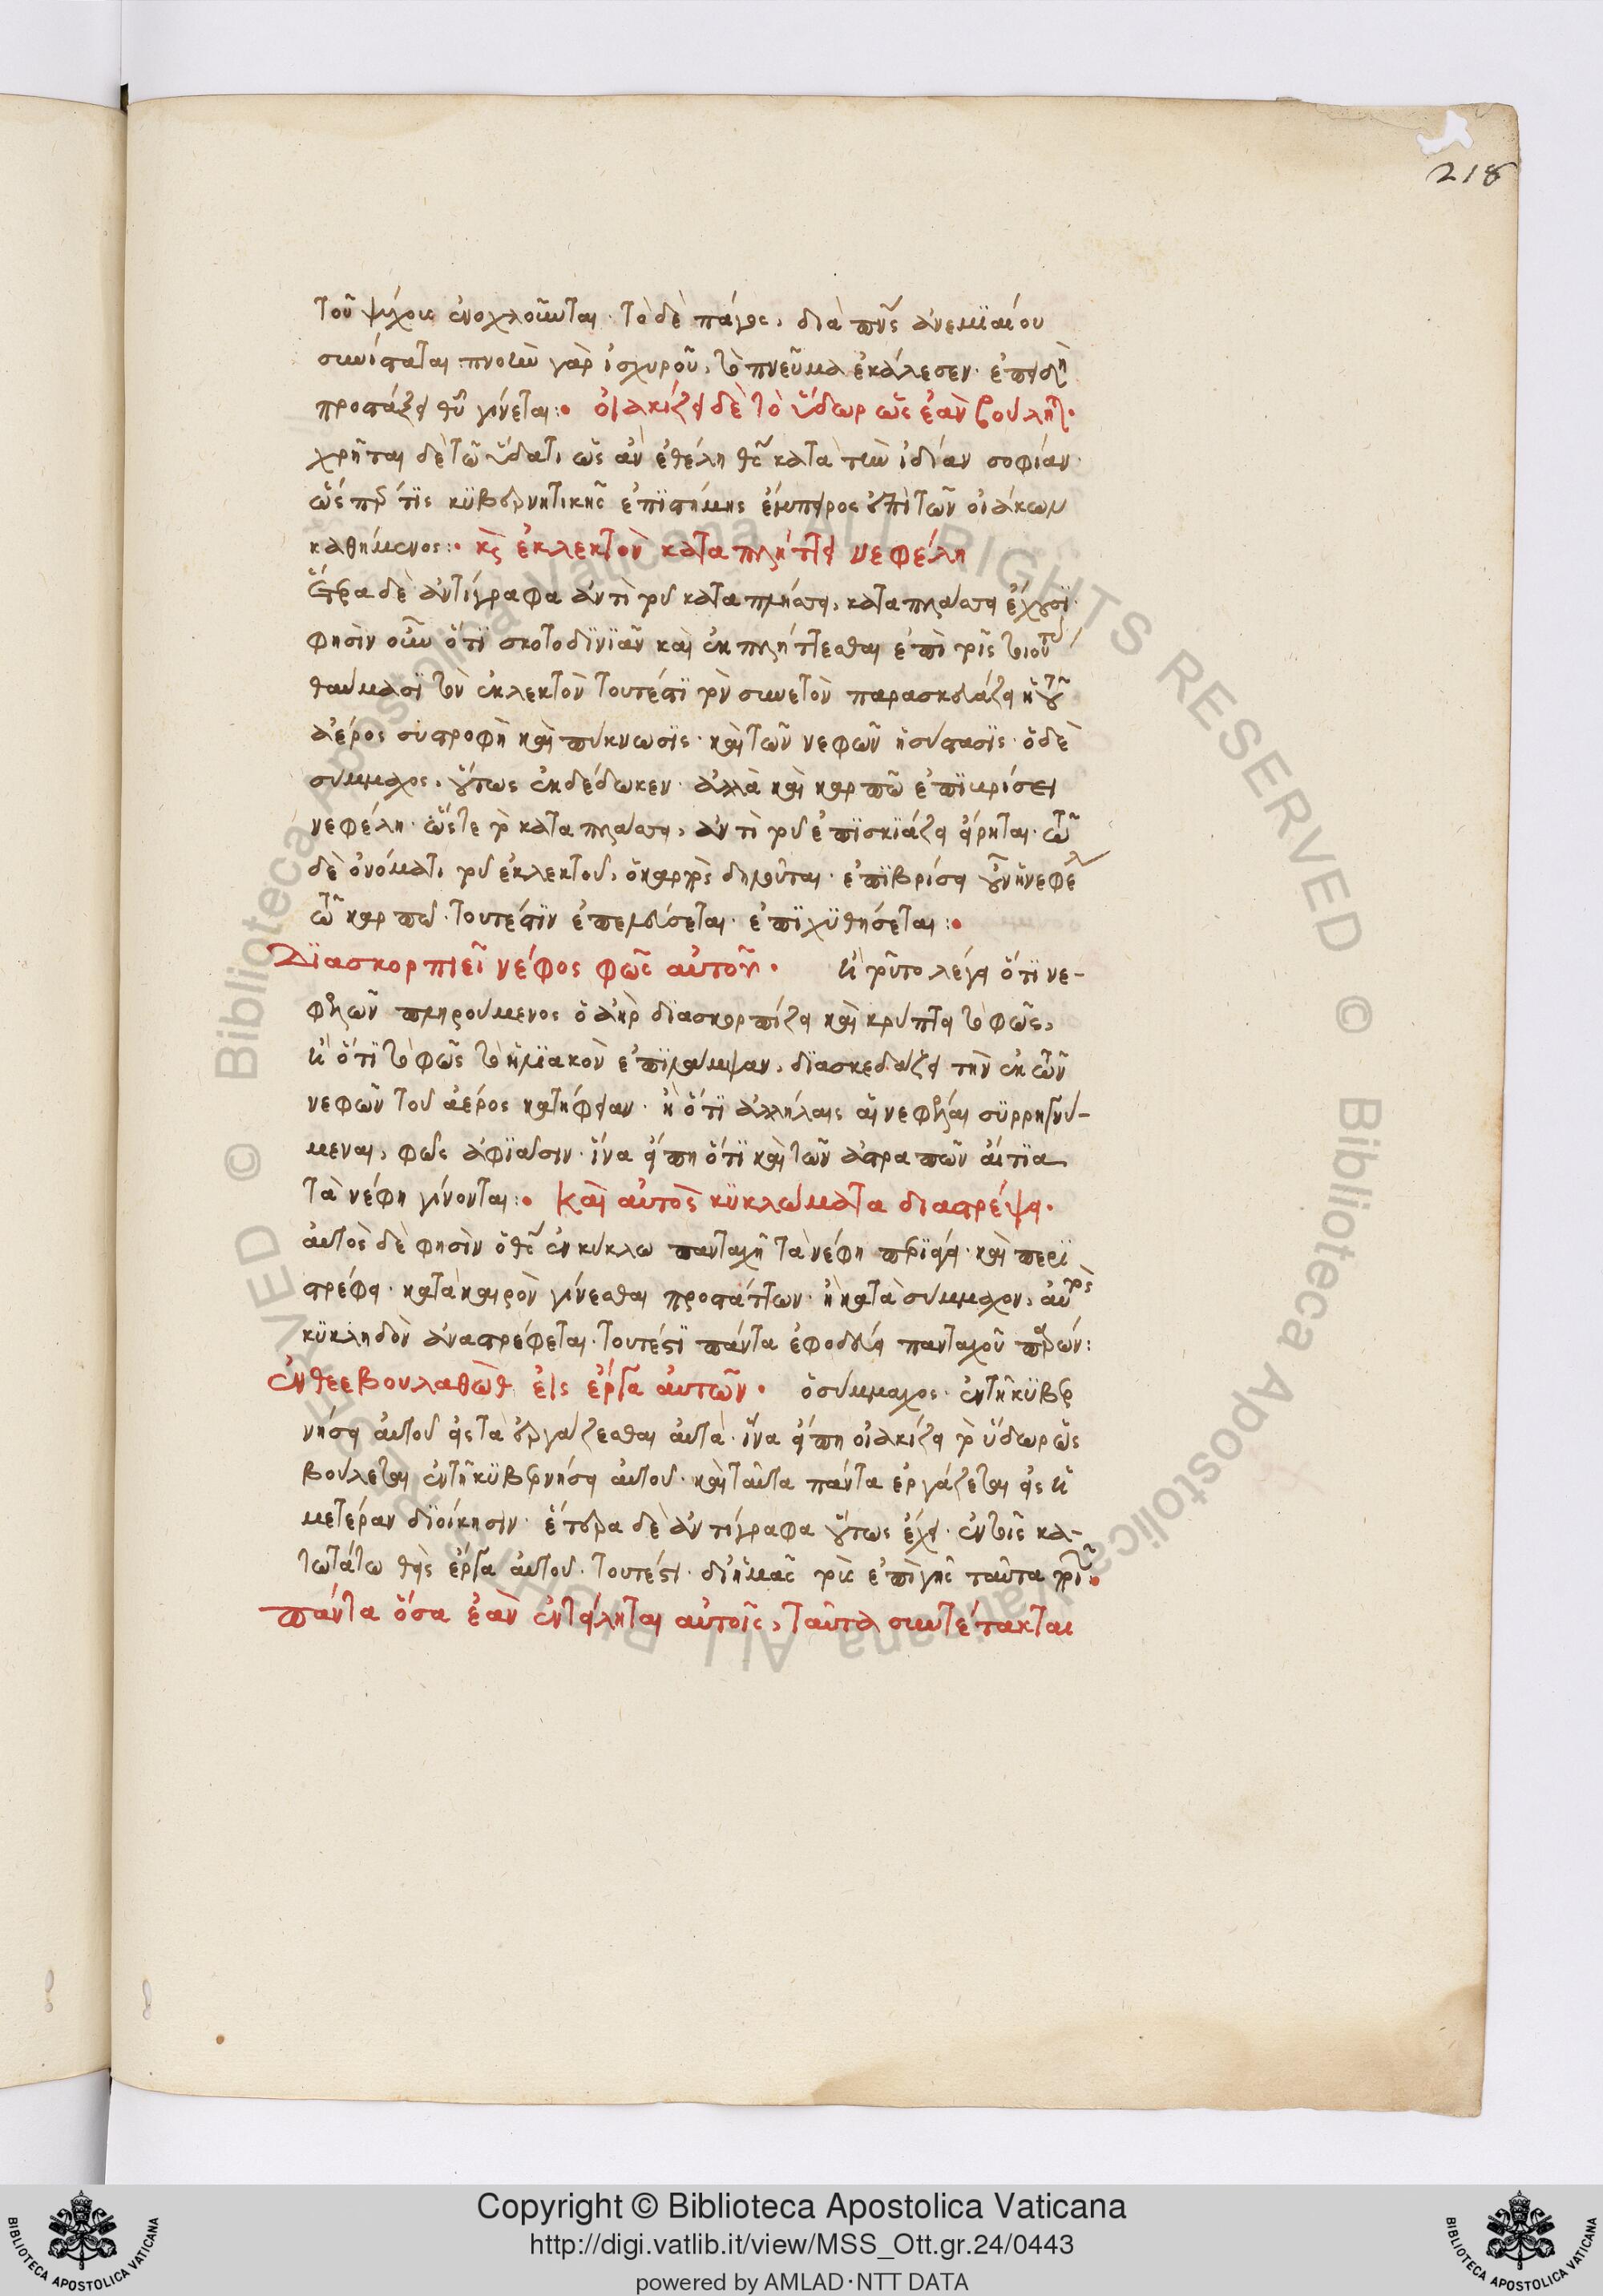 218
τοῦ ψύχους ἐνοχλοῦνται· τὸ δὲ πάγος, διὰ πν̅ς ἀνεμϊαίου
συνίσταται· πνοὴν γὰρ ἰσχυροῦ, τὸ πνεῦμα ἐκάλεσεν· ἐπειδὴ
προστάξει θυ̅ γίνεται:· οἰακίζει δὲ τὸ ὕδωρ ὡς ἐὰν βούλητ·
χρῆται δὲ τῶ ὕδατι ὡς ἂν ἐθέλη θς̅ κατὰ τὴν ἰδίαν σοφίαν·
ὥσπερ τϊς κϋβερνητικῆς ἐπϊστήμης ἔμπειρος ἐπὶ τῶν οἰάκων
καθήμενος:· κὶ ἐκλεκτὸν καταπλήττει νεφέλη
ἕτερα δὲ ἀντίγραφα ἀντὶ τοῦ καταπλήσσει, καταπλάσσει ἔχουσϊ·
φησὶν οὖν ὅτϊ σκοτοδϊνϊᾶν καὶ ἐκπλήττεσθαι ἐπὶ τοῖς τοιού
θαύμασϊ τὸν ἐκλεκτὸν τουτέστϊ τὸν συνετὸν παρασκευάζει ἡ τοῦ
ἀέρος συστροφὴ καὶ πύκνωσϊς· καὶ τῶν νεφῶν ἡ σύστασϊς· ὁ δὲ
σύμμαχος, οὕτως ἐκδέδωκεν· ἀλλὰ καὶ καρπῶ ἐπϊκρίσει
νεφέλη· ὥστε τὸ καταπλάσσει, ἀντὶ τοῦ ἐπϊσκϊάζει εἴρηται· τῶ
δὲ ὀνόματι τοῦ ἐκλεκτοῦ, ὁ καρπὸς δηλοῦται· ἐπϊβρίσει οὖν ἡ νεφέλ
τῶ καρπῶ· τουτέστϊν ἐπελεύσεται· ἐπϊχϋθήσεται:·
Δϊασκορπιεῖ νέφος φῶς αὐτοῦ· ἢ τοῦτο λέγει ὅτϊ νε-
φελῶν πληρούμενος ὁ ἀὴρ δϊασκορπίζει καὶ κρύπτει τὸ φῶς,
ἢ ὅτϊ τὸ φῶς τὸ ἡλϊακὸν ἐπϊλάμψαν, δϊασκεδάζει τὴν ἐκ τῶν
νεφῶν τοῦ ἀέρος κατήφειαν· ἢ ὅτϊ ἀλλήλαις αἱ νεφέλαι σϋρρηγνύ-
μεναι, φῶς ἀφϊᾶσιν· ἵνα εἴπη ὅτϊ καὶ τῶν ἀστραπῶν αἴτϊα
τὰ νέφη γίνονται:· Καὶ αὐτὸς κϋκλώματα διαστρέψει·
αὐτὸς δὲ φησὶν ὁ θς̅ ἐν κύκλω πανταχῆ τὰ νέφη περϊάγει· καὶ περϊ
στρέφει· κατὰ καιρὸν γίνεσθαι προστάττων· ἢ κατὰ σύμμαχον, αὐτὸς
κϋκληδὸν ἀναστρέφεται· τουτέστϊ πάντα ἐφοδεύει πανταχοῦ παρών:
ἐν θεεβουλαθὼθ εἰς ἔργα αὐτῶν· ὁ σύμμαχος· ἐν τῆ κϋβερ
νήσει αὐτοῦ εἰς τὰ ἐργάζεσθαι αὐτά· ἵνα εἴπη οἰακίζει τὸ ὕδωρ ὡς
βούλεται ἐν τῆ κϋβερνήσει αὐτοῦ· καὶ ταῦτα πάντα ἐργάζεται εἰς ἡ
μετέραν δϊοίκησιν· ἕτερα δὲ ἀντίγραφα οὕτως ἔχει· ἐν τοῖς κα-
τωτάτω θεὶς ἔργα αὐτοῦ· τουτέστι· δι' ἡμᾶς τοὺς ἐπὶ γῆς ταῦτα ποιῶν·
πάντα ὅσα ἐὰν ἐντείληται αὐτοῖς, ταῦτα συντέτακται
Copyright © Biblioteca Apostolica Vaticana
http://digi.vatlib.it/view/MSS_Ott.gr.24/0443
powered by AMLAD·NTT DATA